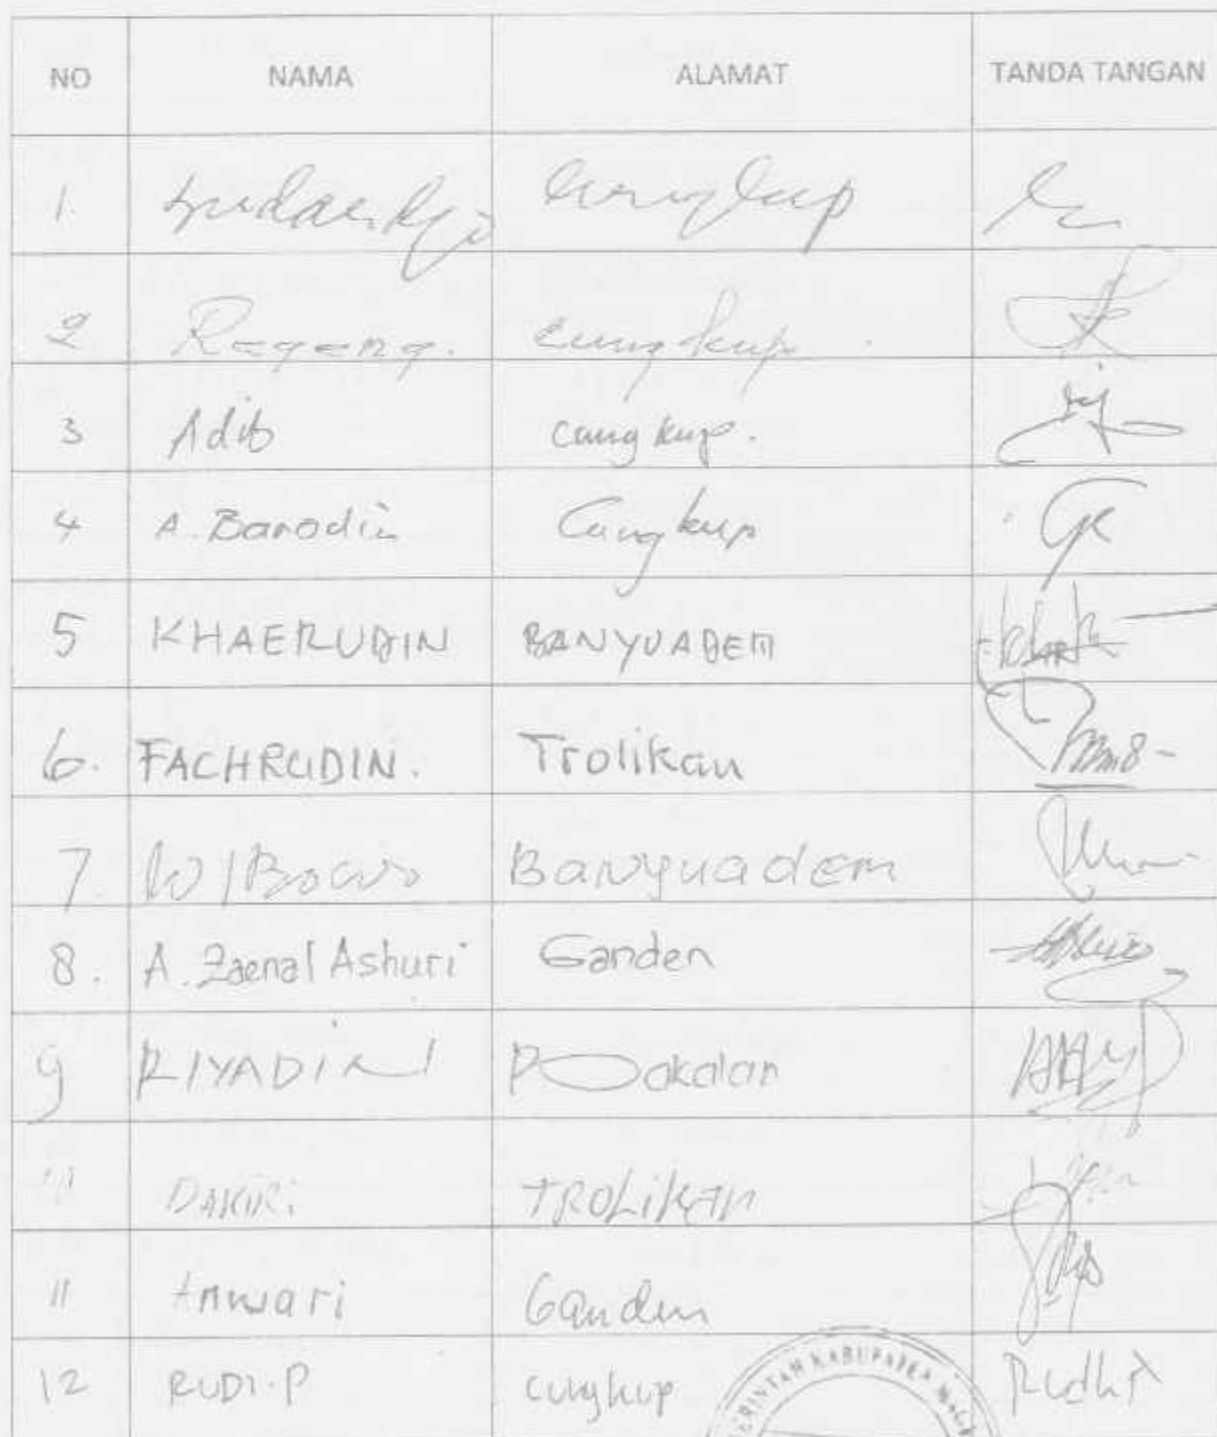 NO NAMA ALAMAT TANDA TANGAN
1. Cungkup
2 Rageng. Cungkup.
3 Adib Cungkup.
4 A. Barodin Cungkup
5 KHAERUDIN BANYUADEM
6. FACHRUDIN. Trolikan
7. WIBOWO Banyuadem
8. A. Zaenal Ashuri Ganden
9 RIYADIN Pakalan
DAKIRI TROLIKAN
11 Anwari Ganden
12 RUDI.P cungkup Rudhi
ERINTAH KABUPATEN MAGE